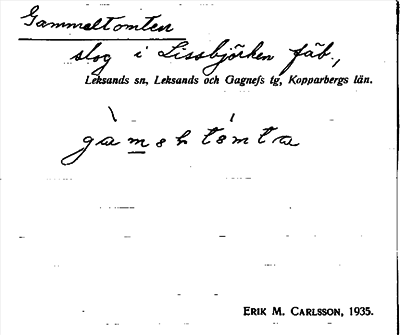 Gammeltomten
slog i Lissbjörken fäb.,
Leksands sn, Leksands och Gagnefs tg, Kopparbergs län.
ERIK M. CARLSSON, 1935.